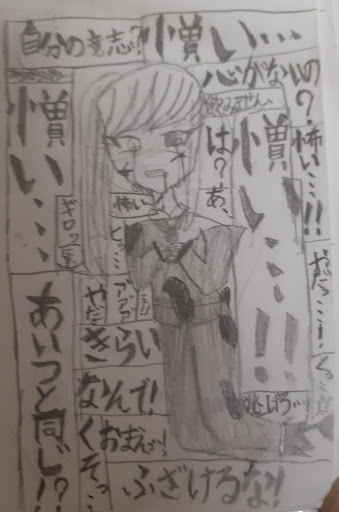 自分の意志?
憎い…
心がないの?
飲みません、
怖い…!!
憎い…!!
は?
あ、
憎い…
怖い
ヒッ…
やだ
きらい
なんで!
くそっ…
おばん
あいつと同じ!?
逃げろ
ふざけるな!